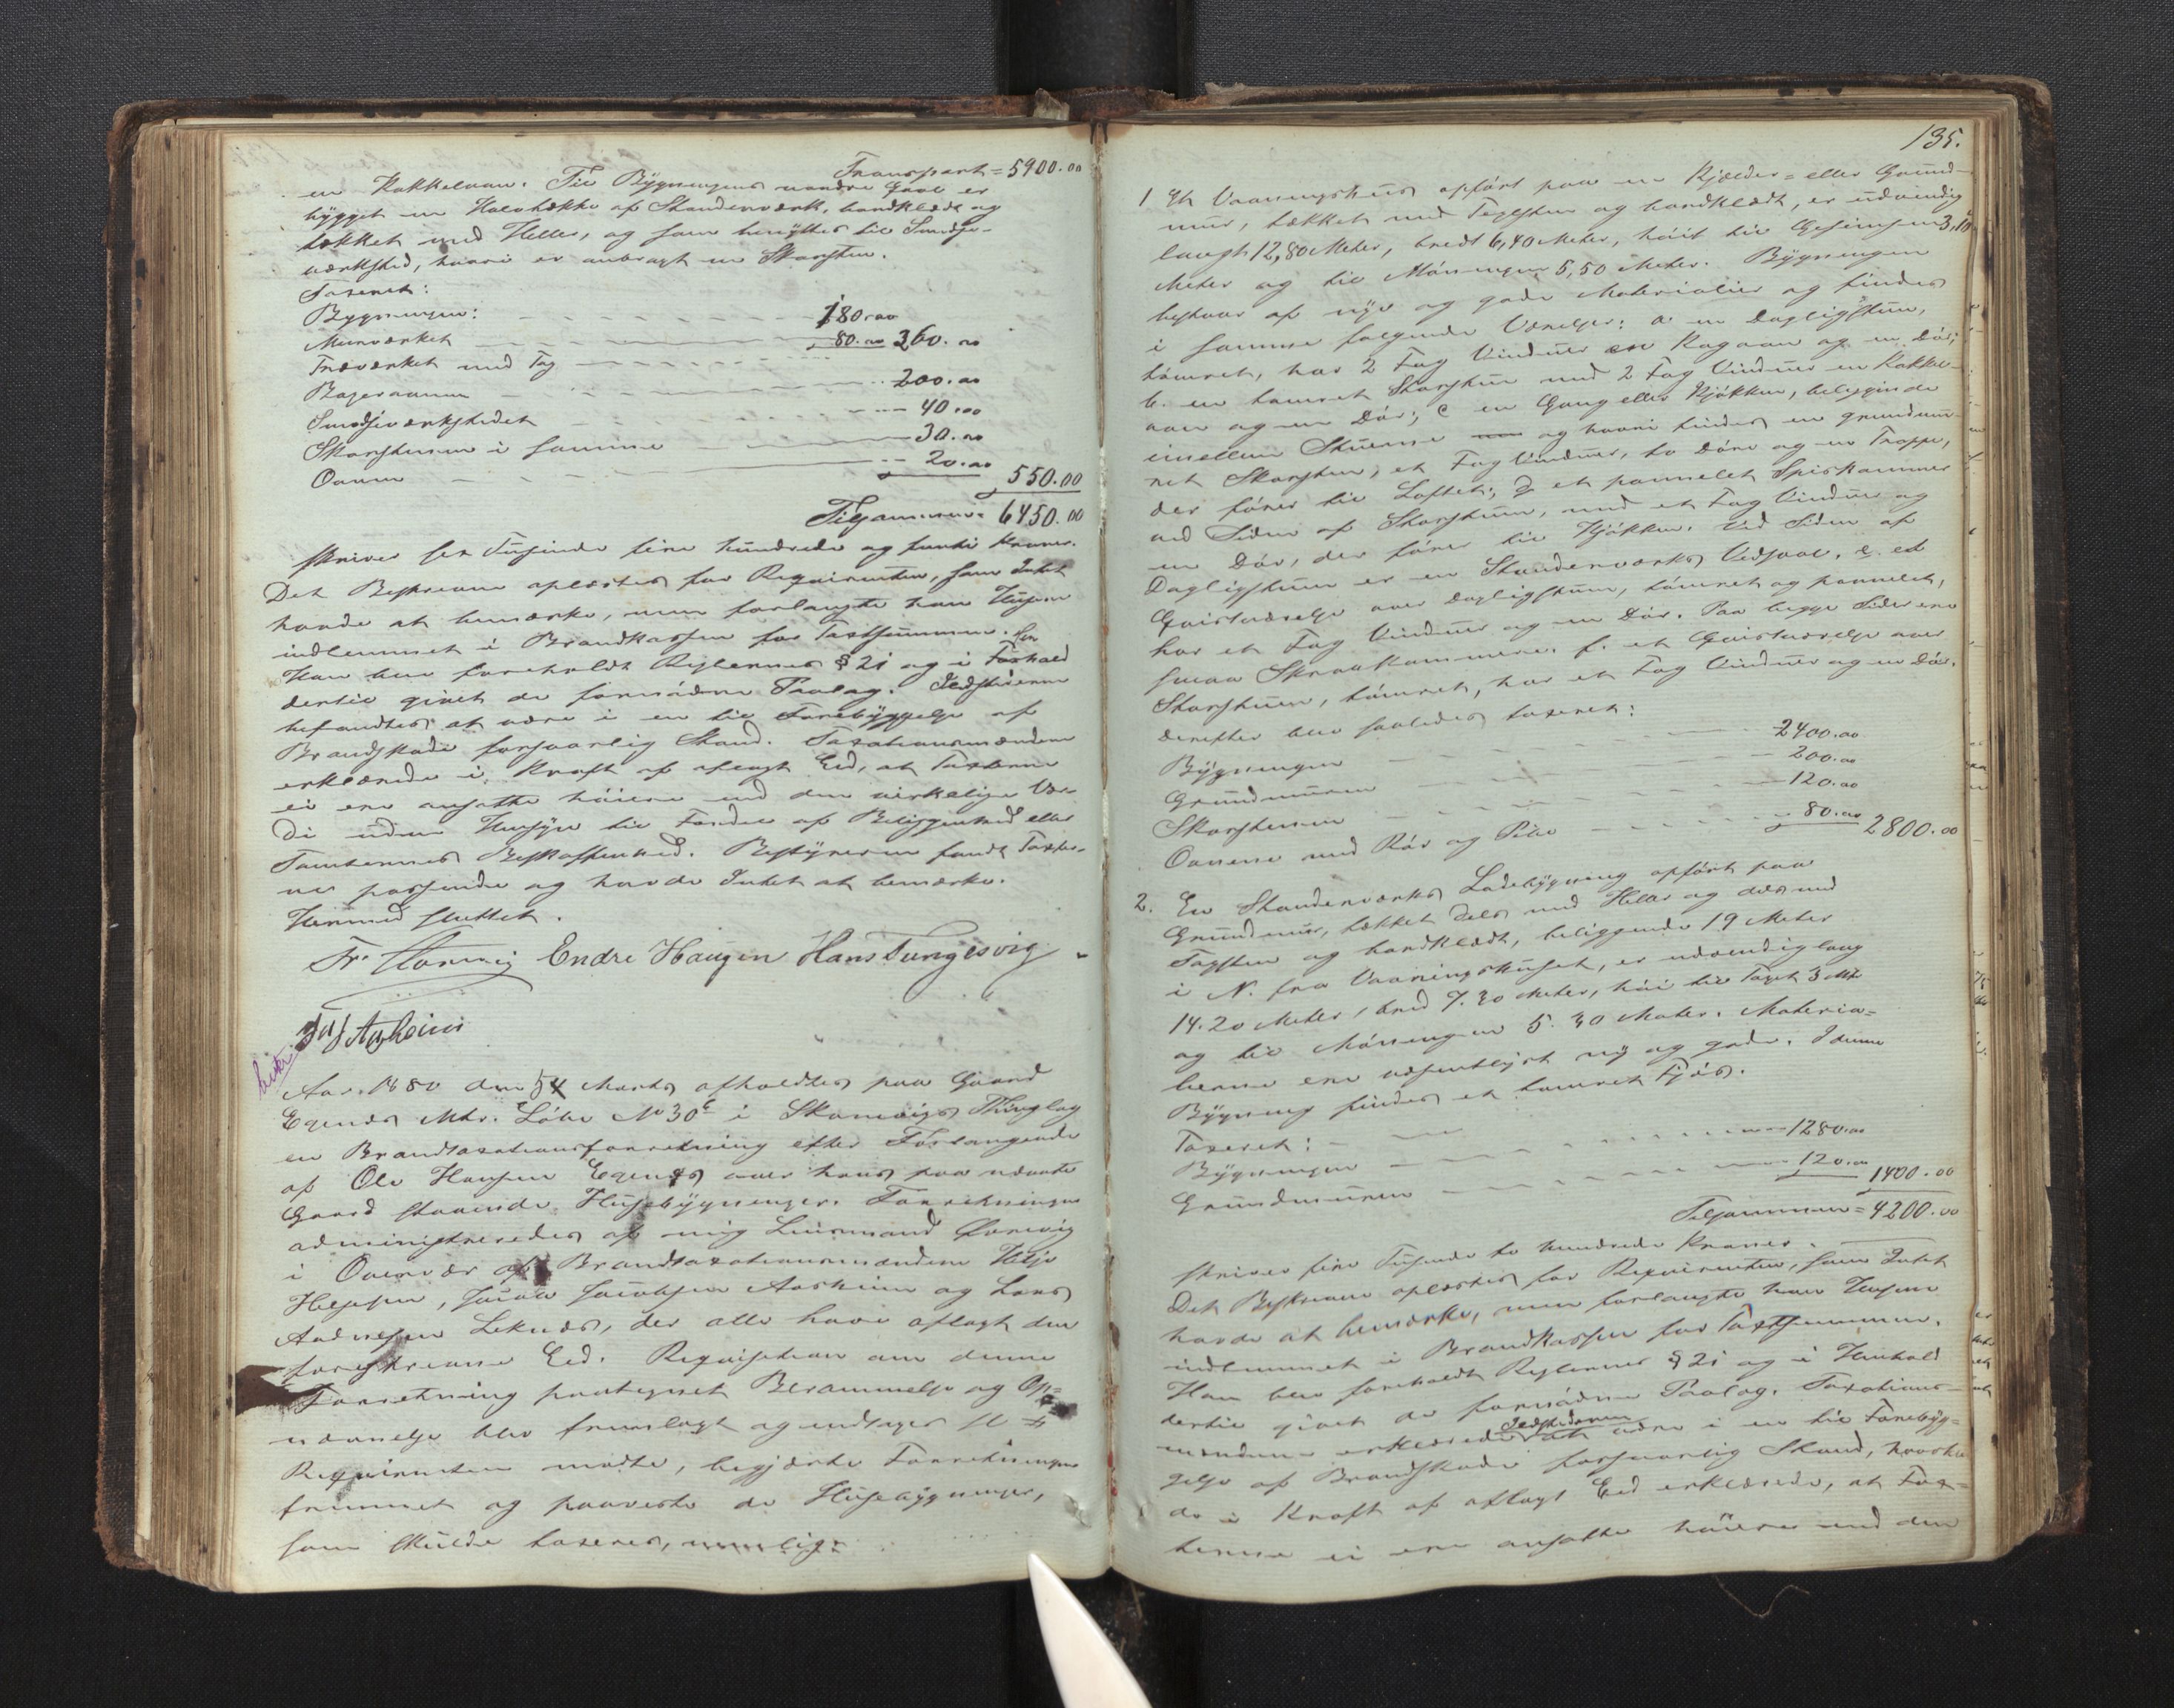 Transport = 5900.00
en Kakkelovn. Til Bygningens nordre Gavl er
bygget en Halvtække af Standerværk, bordklædt og
tækket med Heller, og som benyttes til Smedje-
værksted, hvori er anbragt en Skorsten.
Taxeret:
Bygningen:
Murværket 180.00
Træværket med Tag 80.00 360.00
Bageraanen 200.00
Smedjeværkstedet 40.00
Skorstenen i samme 30.00
Ovnen 20.00
550.00
Tilsammen = 6450.00
skriver sex Tusinde fire hundrede og femti Kroner.
Det Beskrevne oplæstes for Reqvirenten, som Intet
havde at bemærke, men forlangte han Husene
indlemmet i Brandkassen for Taxtsummen.
Han blev foreholdt Reglernes § 21 og i Forhold
dertil givet de fornødne Paalæg. Ildstederne
befandtes at være i en til Forebyggelse af
Brandskade forsvarlig Stand. Taxationsmændene
erklærede i Kraft af aflagt Eed, at Taxterne
ei ere ansatte høiere end den virkelige Vær-
di uden Hensyn til Fordel af Beliggenhed eller
Tomternes Beskaffenhed. Bestyreren fandt Taxter-
ne passende og havde Intet at bemærke.
Hermed sluttet.
Fr. Horneig Endre Haugen Hans Tungesvig
Aar 1880 den 5 Marts afholdtes paa Gaard
Egenes Mtr. Løbe No 30 c i Skonevigs Thinglag
en Brandtaxationsforretning efter Forlangende
af Ole Hansen Egenes over hans paa nævnte
Gaard staaende Husebygninger. Forretningen
administreredes af mig Lensmand
i Overvær af Brandtaxationsmændene Helje
Heljesen, Jacob Jacobsen Aasheim og Lars
Aadnesen Leknes, der alle have aflagt den
foreskrevne Eed. Reqvisition om denne
Forretning paategnet Berammelse og Op-
nævnelse blev fremlagt og indtages
Reqvirenten mødte, begjærte Forretningen
fremmet og paaviste de Husebygninger,
som skulde taxeres, nemlig:
135.
1 Et Vaaningshus opført paa en Kjælder= eller Grund-
mur, tækket med Tegelsten og bordklædt, er udvendig
langt 12,80 Meter, bredt 6,40 Meter, høit til Gesimsen 3,10
Meter og til Mønningen 5,50 Meter. Bygningen
bestaar af nye og gode Materialier og findes
i samme følgende Værelser: a en Dagligstue,
tømret, har 2 Fag Vinduer en Kogovn og en Dør;
b. en tømret Storstue med 2 Fag Vinduer en Kakkel-
ovn og en Dør; c en Gang eller Kjøkken, beliggende
imellem Stuerne og hvori findes en grundmu-
ret Skorsten, et Fag Vinduer, to Døre og en Trappe,
der fører til Loftet; d et pannelet Spiskammer
ved Siden af Skorstenen, med et Fag Vinduer og
en Dør, der fører til Kjøkken. Ved Siden af
Dagligstuen er en Standerværks Vedsval. e. et
Qvistværelse over Dagligstuen, tømret og pannelet,
har et Fag Vinduer og en Dør. Paa begge Sider ere
smaa Skraakammere. f. et Qvistværelse over
Storstuen, tømret, har et Fag Vinduer og en Dør.
derefter blev saaledes taxeret:
Bygningen 2400.00
Grundmuren 200.00
Skorstenen 120.00
Ovnene med Rør og Pibe 80.00 2800.00
2. En Standerværks Ladebygning opført paa
Grundmur, tækket dels med Heller og dels med
Tagsten og bordklædt, beliggende 19 Meter
i N. fra Vaaningshuset, er udvendig lang
14.20 Meter, bred 7.30 Meter, høi til Taget 3 Mtr
og til Mønningen 5.40 Meter. Materia-
lierne ere væsentligst ny og gode. I denne
Bygning findes et tømret Fjøs.
Taxeret:
Bygningen 1280.00
Grundmuren 120.00 1400.00
Tilsammen = 4200.00
skriver fire Tusinde to hundrede Kroner.
Det Beskrevne oplæstes for Reqvirenten, som Intet
havde at bemærke, men forlangte han Husene
indlemmet i Brandkassen for Taxtsummen.
Han blev foreholdt Reglernes § 21 og i Henhold
dertil givet de fornødne Paalæg. Taxations-
mændene erklærede Ildstederne at være i en til Forebyg-
gelse af Brandskade forsvarlig Stand, hvorhos
de i Kraft af aflagt Eed erklærede, at Tax-
terne ei ere ansatte høiere end den